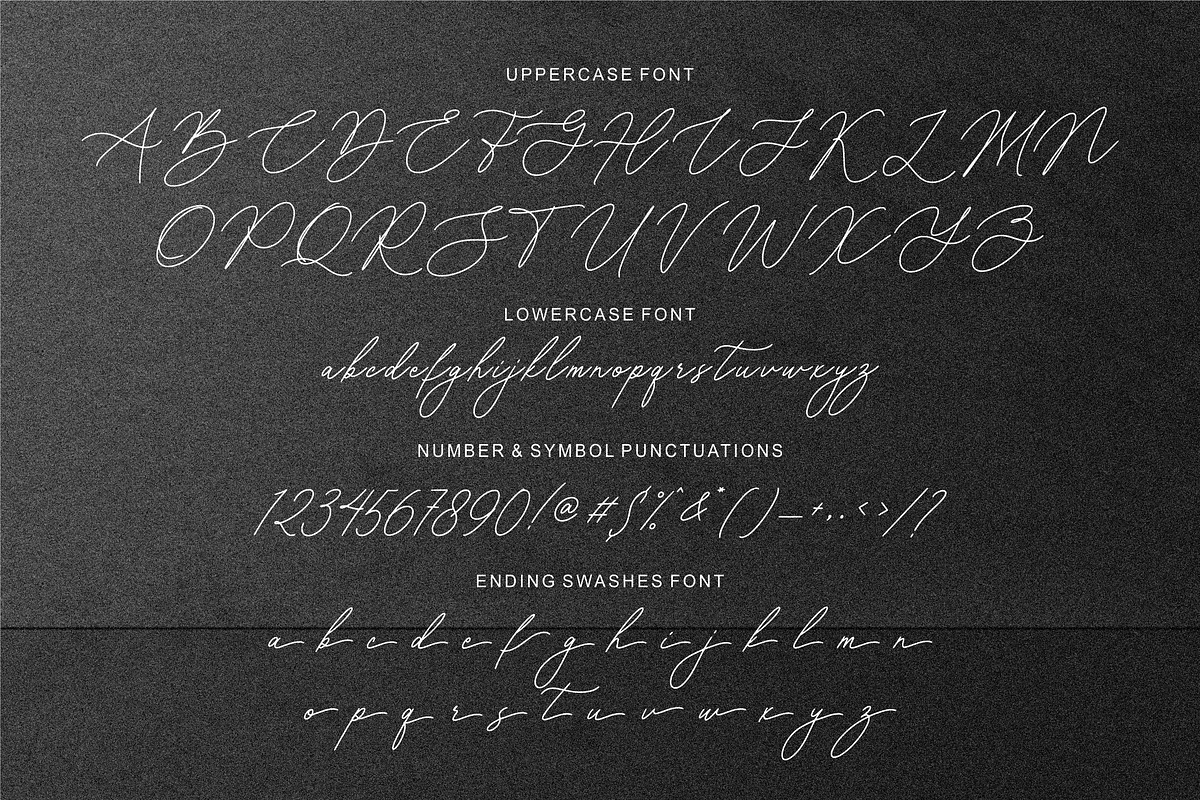 UPPERCASE FONT
A B C D E F G H I J K L M N
O P Q R S T U V W X Y Z
LOWERCASE FONT
abcdefghijklmnopqrstuvwxyz
NUMBER & SYMBOL PUNCTUATIONS
1234567890!@#$%^&*()_+,.<>/?
ENDING SWASHES FONT
a b c d e f g h i j k l m n
o p q r s t u v w x y z